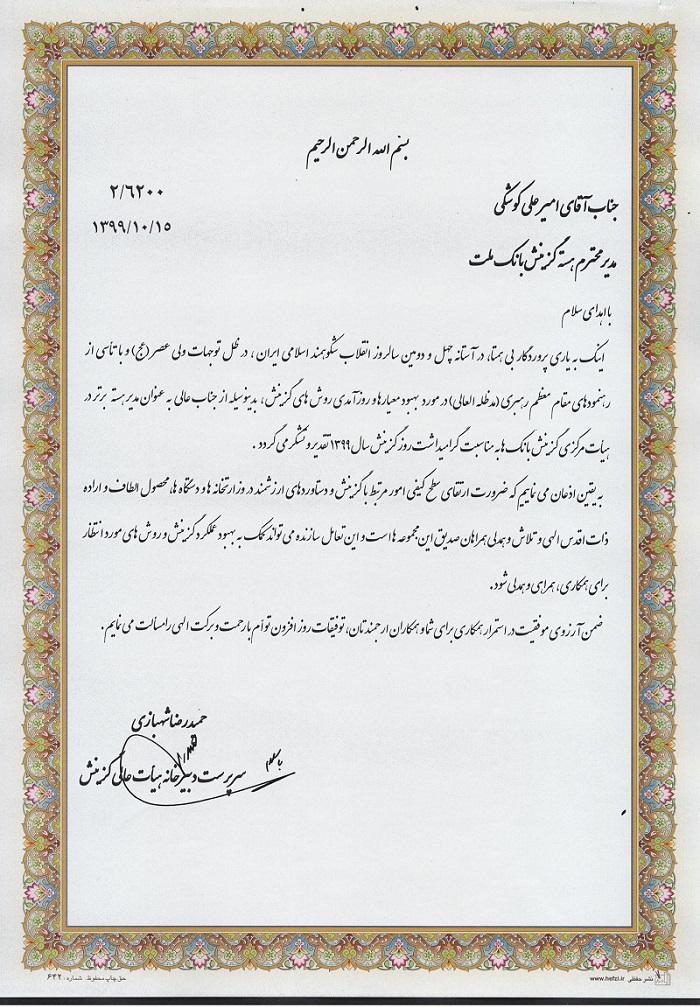 بسم الله الرحمن الرحیم
۲/۶۲۰۰
۱۳۹۹/۱۰/۱۵
جناب آقای امیر علی کوشکی
مدیر محترم هسته گزینش بانک ملت
با اهدای سلام
اینک به یاری پروردگار بی همتا، در آستانه چهل و دومین سالروز انقلاب شکوهمند اسلامی ایران ، در ظل توجهات ولی عصر (عج) و با تأسی از
رهنمودهای مقام معظم رهبری (مدظله العالی) در مورد بهبود معیارها و روزآمدی روش های گزینش، بدینوسیله از جناب عالی به عنوان مدیر هسته برتر در
هیأت مرکزی گزینش بانک ها، به مناسبت گرامیداشت روز گزینش سال ۱۳۹۹ تقدیر و تشکر می گردد .
به یقین اذعان می نماییم که ضرورت ارتقای سطح کیفی امور مرتبط با گزینش و دستاوردهای ارزشمند در وزارتخانه ها و دستگاه ها، محصول الطاف و اراده
ذات اقدس الهی و تلاش و همدلی همراهان صدیق این مجموعه ها است و این تعامل سازنده می تواند کمک به بهبود عملکرد گزینش و روش های مورد انتظار
برای همکاری، همراهی و همدلی شود.
ضمن آرزوی موفقیت در استمرار همکاری برای شما و همکاران ارجمندتان، توفیقات روز افزون توأم با رحمت و برکت الهی را مسألت می نمایم .
حمیدرضا شهبازی
سرپرست دبیرخانه هیأت عالی گزینش
حق چاپ محفوظ. شماره: ۶۴۲
نشر حفظی www.hefzi.ir